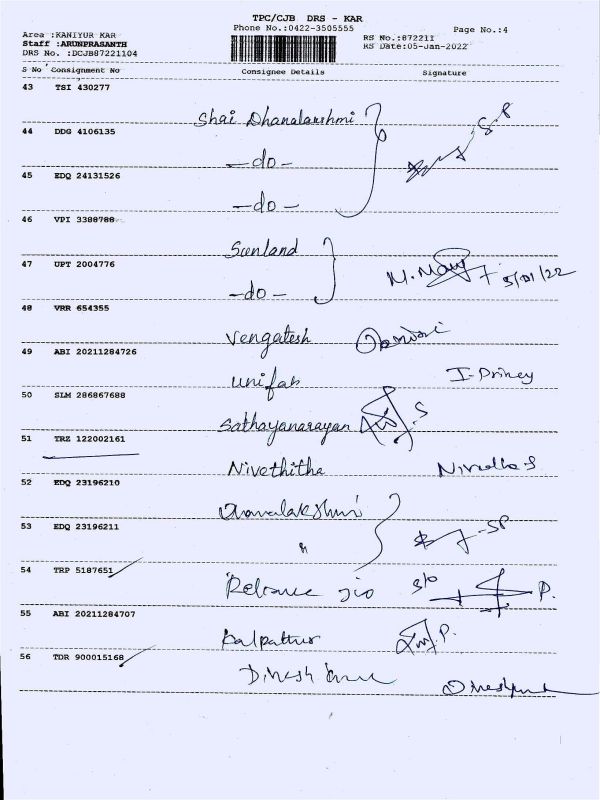 TPC/CJB DRS - KAR
Phone No.:0422-3505555
Page No.:4
Area :KANIYUR KAR
RS No.:872211
Staff :ARUNPRASANTH
RS Date:05-Jan-2022
DRS No. :DCJB87221104
S No Consignment No Consignee Details Signature
43 TSI 430277
Shai Dhanalakshmi
S.P
44 DDG 4106135
-do-
45 EDQ 24131526
-do-
46 VPI 3388788
Sunland
47 UPT 2004776
M. 5/01/22
-do-
48 VRR 654355
Vengatesh
49 ABI 20211284726
unifab
50 SLM 286867688
Sathayanarayan
51 TRZ 122002161
Nivethitha
52 EDQ 23196210
53 EDQ 23196211
SP
54 TRP 5187651
Reliance jio
P.
55 ABI 20211284707
Kalpattur
P.
56 TDR 900015168
Dinesh